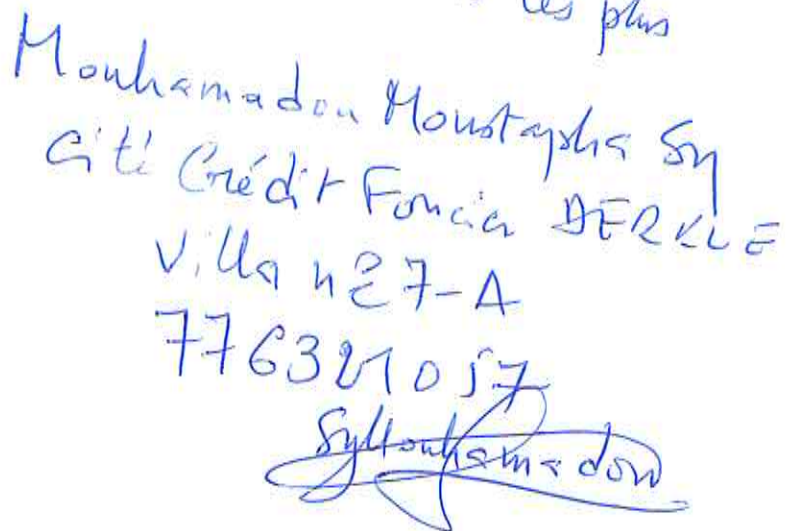 les plus
Mouhamadou Moustapha Sy
Cité Crédit Foncier DERKLE
Villa n° 7-A
776321057
SyMouhamadou